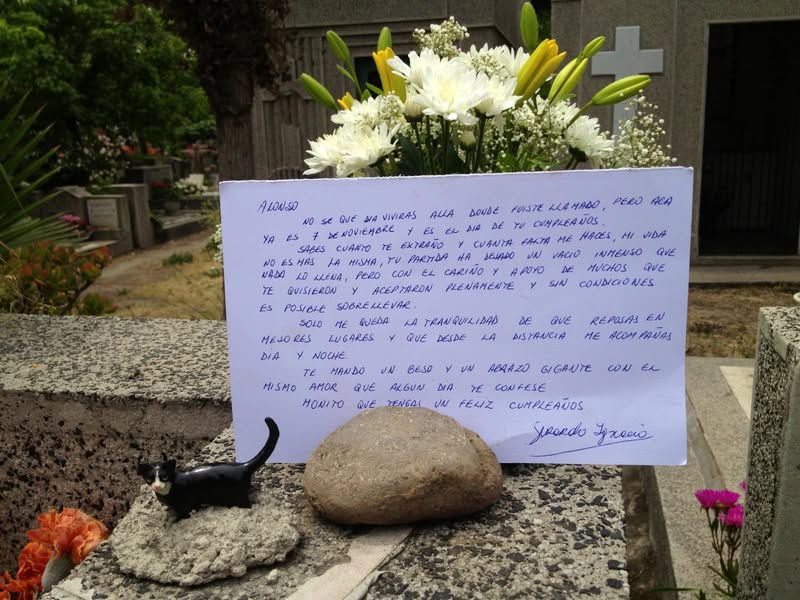 ALONSO
NO SE QUE DIA VIVIRAS ALLA DONDE FUISTE LLAMADO, PERO ACA
YA ES 7 DE NOVIEMBRE Y ES EL DIA DE TU CUMPLEAÑOS.
SABES CUANTO TE EXTRAÑO Y CUANTA FALTA ME HACES, MI VIDA
NO ES MAS LA MISMA, TU PARTIDA HA DEJADO UN VACIO INMENSO QUE
NADA LO LLENA, PERO CON EL CARIÑO Y APOYO DE MUCHOS QUE
TE QUISIERON Y ACEPTARON PLENAMENTE Y SIN CONDICIONES
ES POSIBLE SOBRELLEVAR.
SOLO ME QUEDA LA TRANQUILIDAD DE QUE REPOSAS EN
MEJORES LUGARES Y QUE DESDE LA DISTANCIA ME ACOMPAÑAS
DIA Y NOCHE.
TE MANDO UN BESO Y UN ABRAZO GIGANTE CON EL
MISMO AMOR QUE ALGUN DIA TE CONFESE
MONITO QUE TENGAS UN FELIZ CUMPLEAÑOS
Gerardo Ignacio